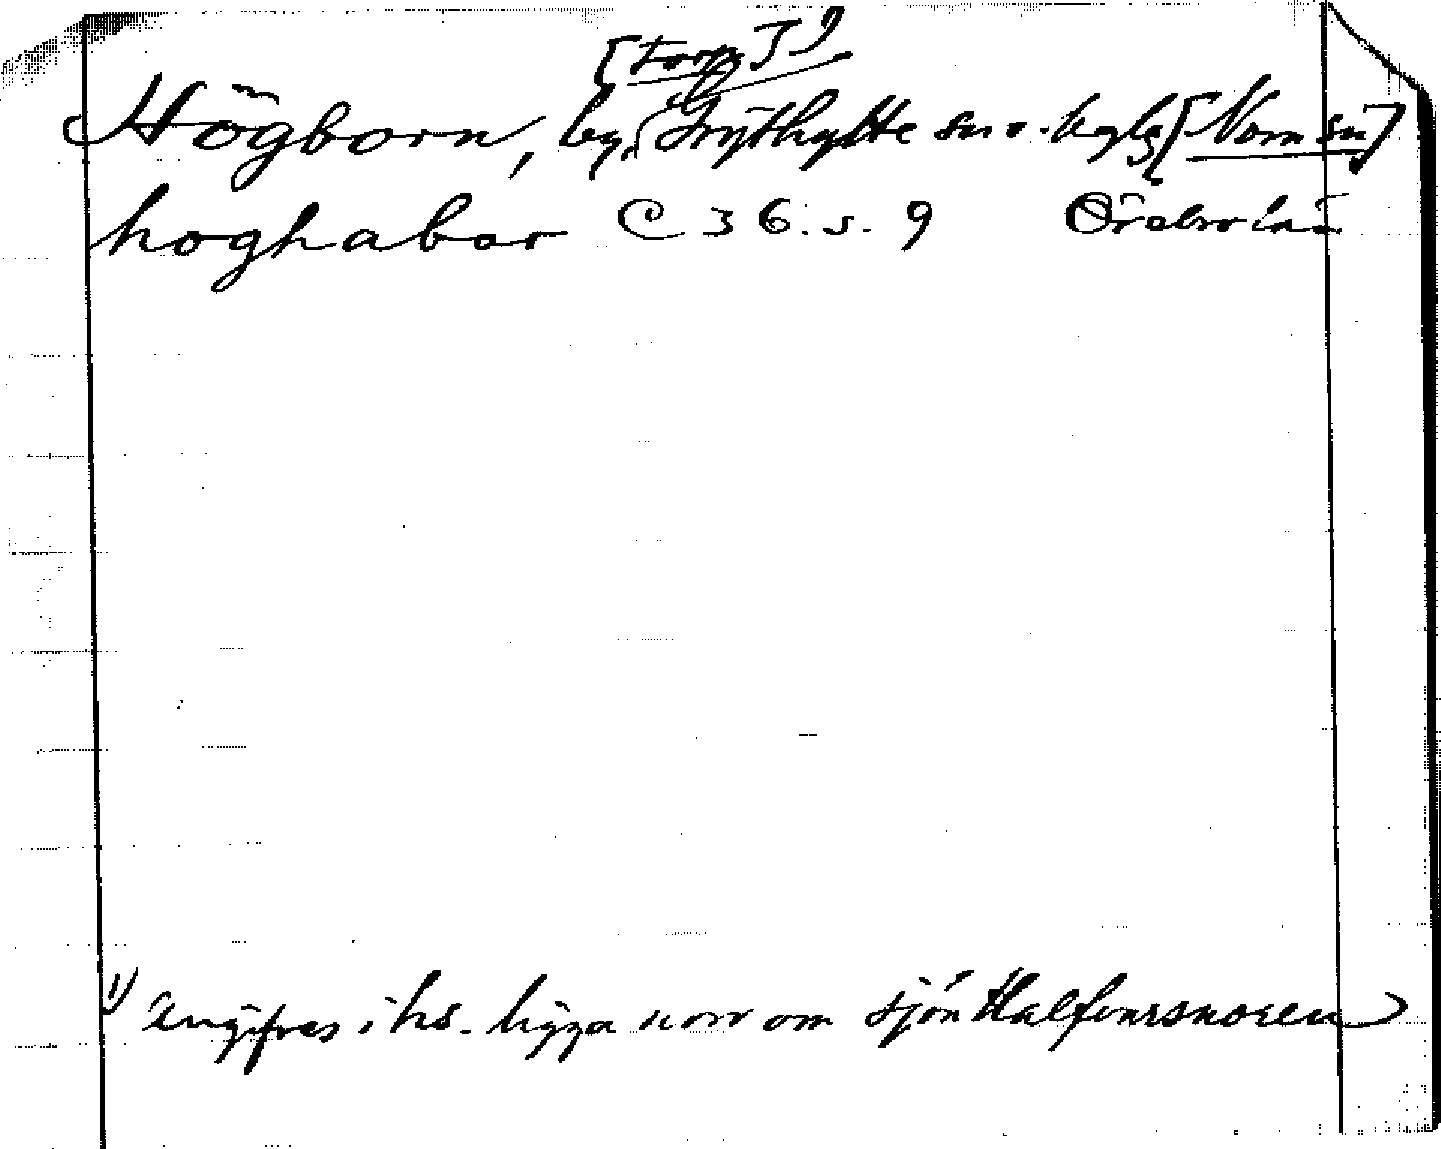 [torp]
Högborn, by, Grythytte sn o. bgslg [Nora sn]
hoghabor C 36. s. 9 Örebro län
1) Angifves i hs. ligga norr om sjön Halfvarsnoren